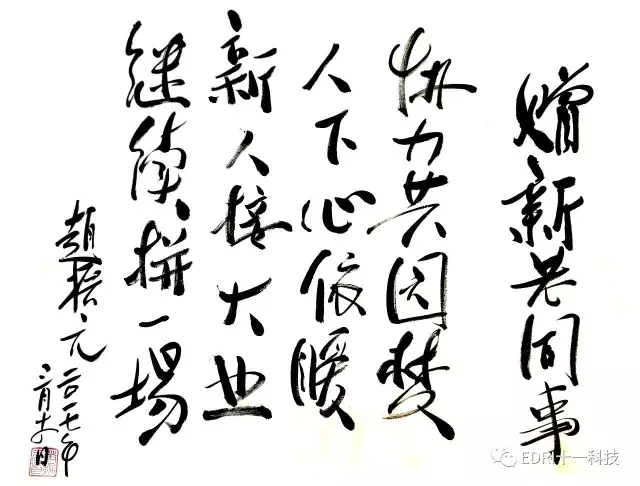 赠新老同事
协力共圆梦
人下心依暖
新人接大业
继续拼一场
趙振元二〇一七年
三月
日
EDRI十一科技